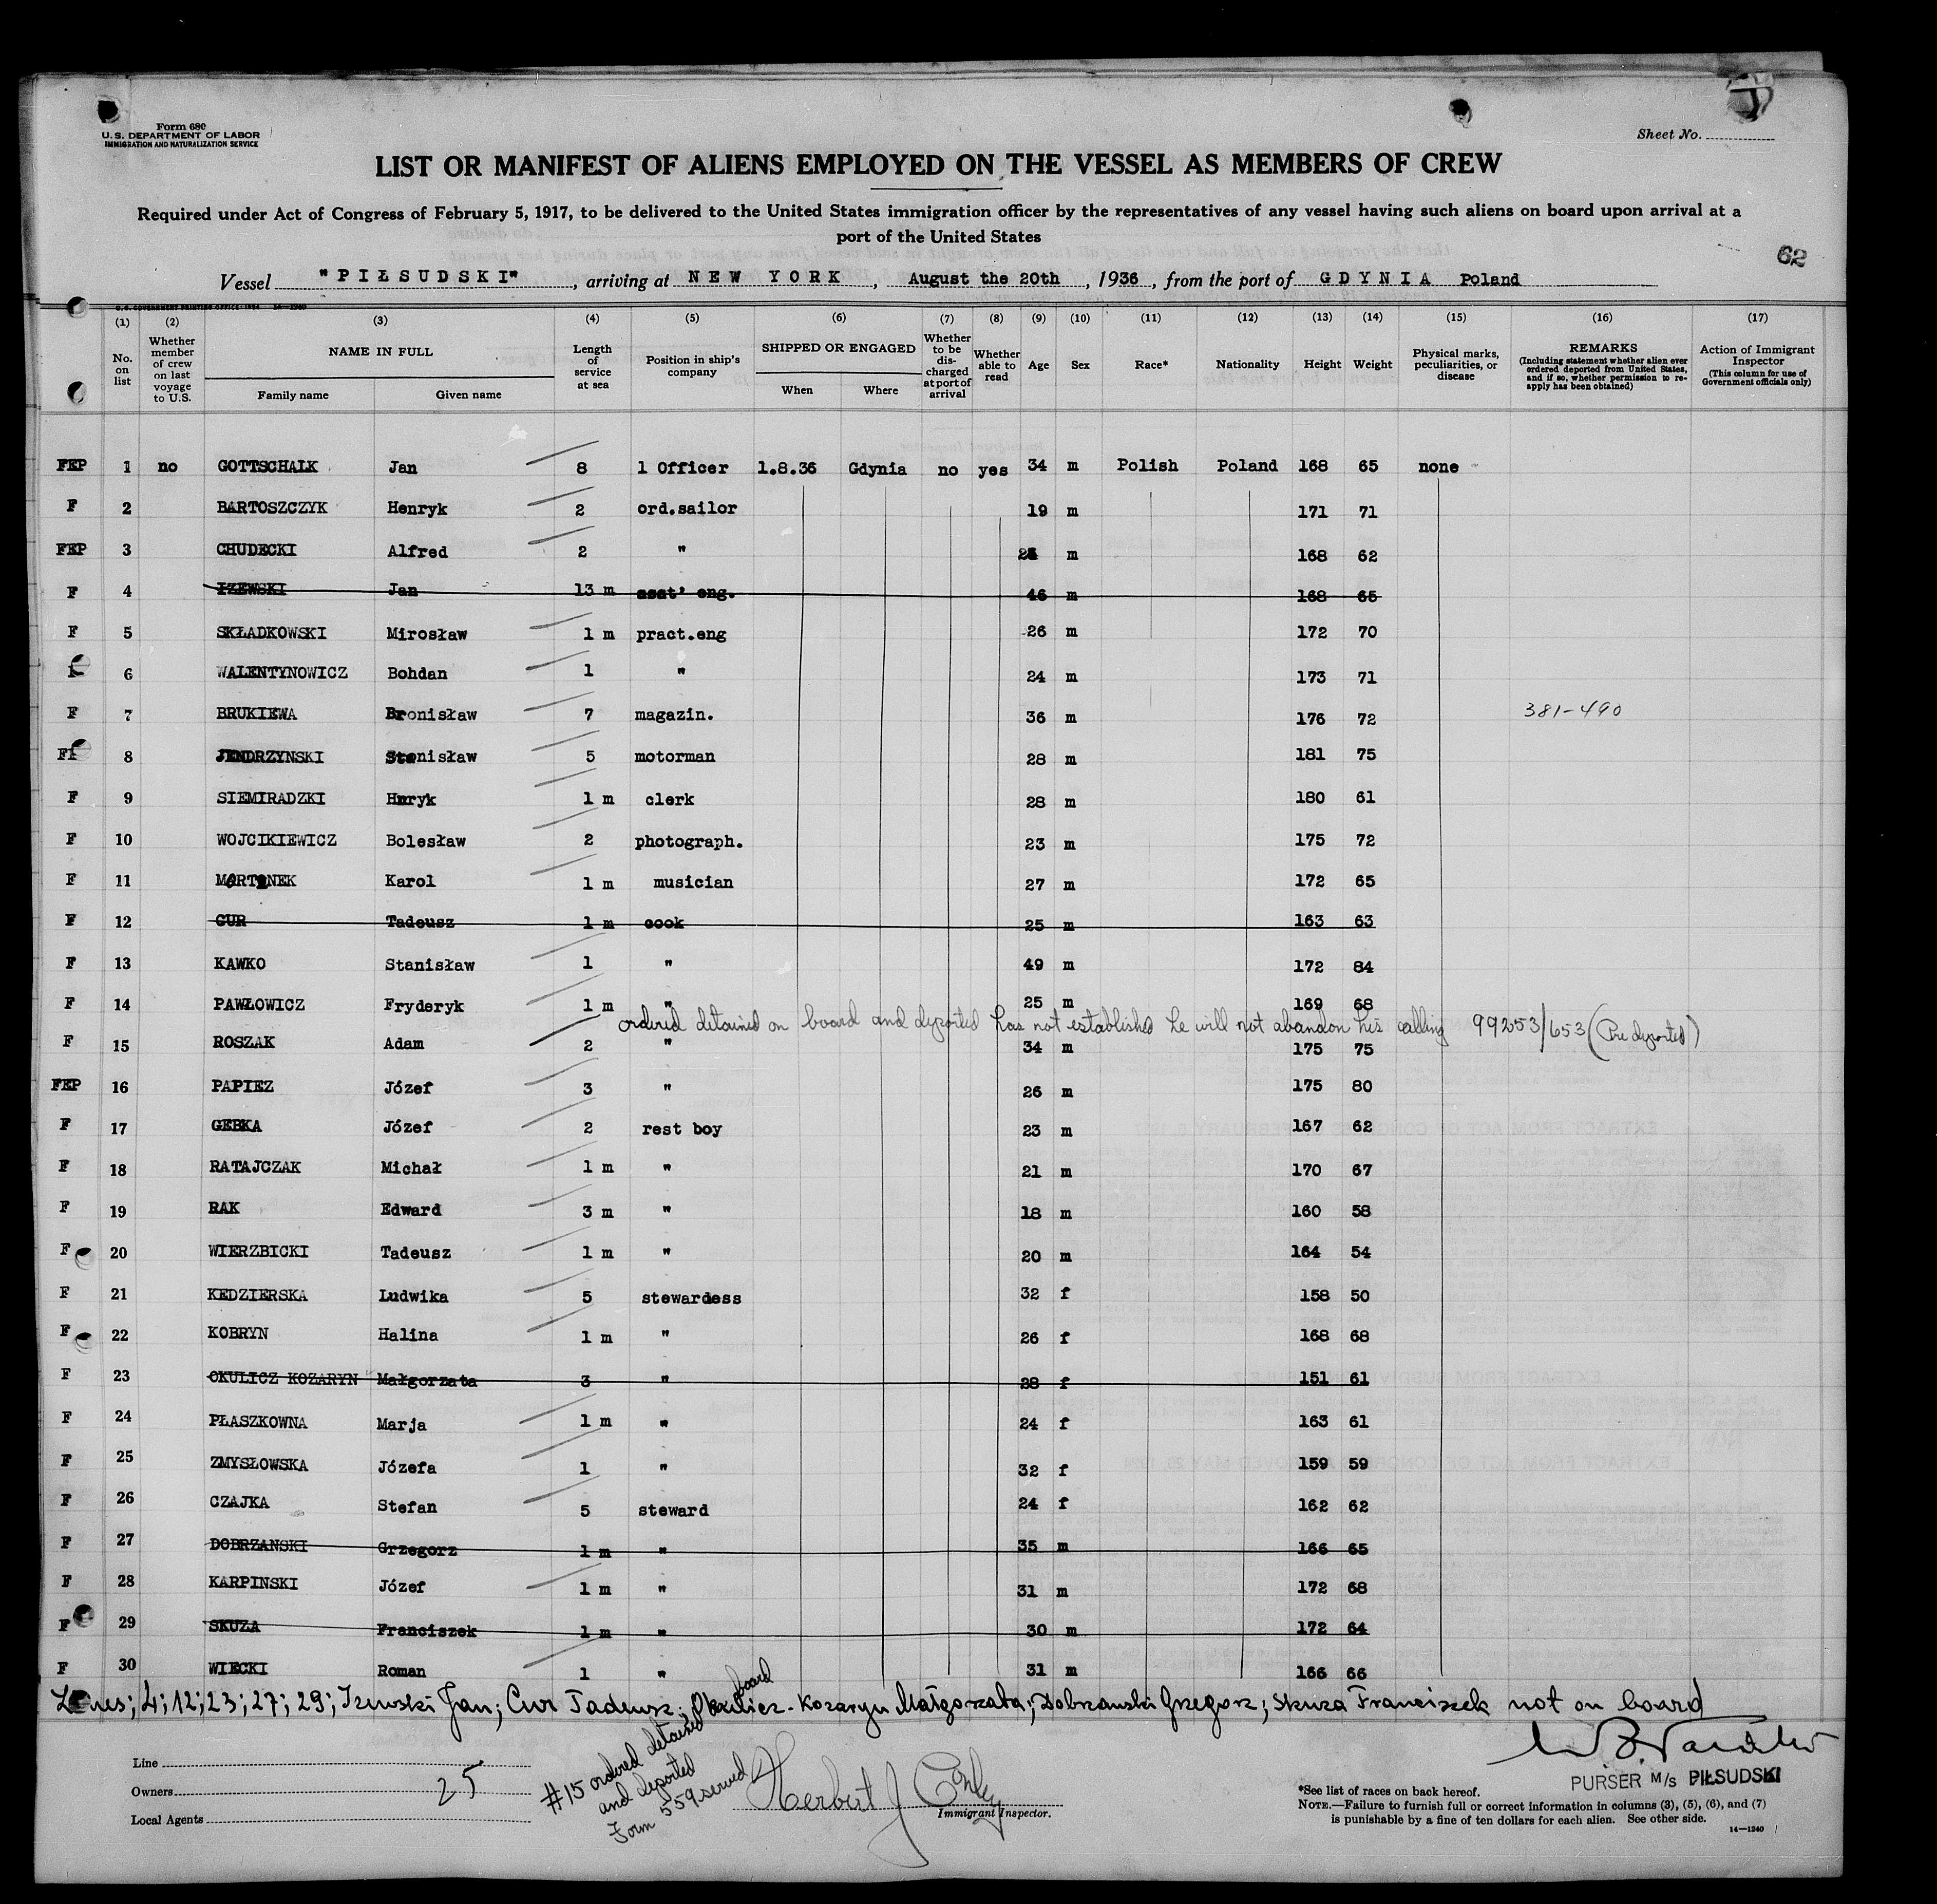 Form 680
U. S. DEPARTMENT OF LABOR
IMMIGRATION AND NATURALIZATION SERVICE
Sheet No.
LIST OR MANIFEST OF ALIENS EMPLOYED ON THE VESSEL AS MEMBERS OF CREW
Required under Act of Congress of February 5, 1917, to be delivered to the United States immigration officer by the representatives of any vessel having such aliens on board upon arrival at a
port of the United States
62
Vessel "PIŁSUDSKI", arriving at NEW YORK, August the 20th, 1936, from the port of GDYNIA Poland
U.S. GOVERNMENT PRINTING OFFICE: 1934
(1) (2) (3) (4) (5) (6) (7) (8) (9) (10) (11) (12) (13) (14) (15) (16) (17)
No. on list
Whether member of crew on last voyage to U.S.
NAME IN FULL
Family name Given name
Length of service at sea
Position in ship's company
SHIPPED OR ENGAGED
When Where
Whether to be discharged at port of arrival
Whether able to read
Age
Sex
Race*
Nationality
Height
Weight
Physical marks, peculiarities, or disease
REMARKS
(Including statement whether alien ever ordered deported from United States, and if so, whether permission to re-apply has been obtained)
Action of Immigrant Inspector
(This column for use of Government officials only)
FEP 1 no GOTTSCHALK Jan 8 1 Officer 1.8.36 Gdynia no yes 34 m Polish Poland 168 65 none
F 2 BARTOSZCZYK Henryk 2 ord.sailor 19 m 171 71
FEP 3 CHUDECKI Alfred 2 " m 168 62
F 4 IZEWSKI Jan 13 m asst' eng. 46 m 168 65
F 5 SKŁADKOWSKI Mirosław 1 m pract.eng 26 m 172 70
6 WALENTYNOWICZ Bohdan 1 " 24 m 173 71
F 7 BRUKIEWA Bronisław 7 magazin. 36 m 176 72 381-490
8 JENDRZYNSKI Stanisław 5 motorman 28 m 181 75
F 9 SIEMIRADZKI Hnryk 1 m clerk 28 m 180 61
F 10 WOJCIKIEWICZ Bolesław 2 photograph. 23 m 175 72
F 11 Karol 1 m musician 27 m 172 65
F 12 CUR Tadeusz 1 m cook 25 m 163 63
F 13 KAWKO Stanisław 1 " 49 m 172 84
F 14 PAWŁOWICZ Fryderyk 1 m " 25 m 169 68
ordered detained on board and deported has not established he will not abandon his calling 99253/653 (Pre deported)
F 15 ROSZAK Adam 2 " 34 m 175 75
FEP 16 PAPIEZ Józef 3 " 26 m 175 80
F 17 GEBKA Józef 2 rest boy 23 m 167 62
F 18 RATAJCZAK Michał 1 m " 21 m 170 67
F 19 RAK Edward 3 m " 18 m 160 58
F 20 WIERZBICKI Tadeusz 1 m " 20 m 164 54
F 21 KEDZIERSKA Ludwika 5 stewardess 32 f 158 50
F 22 KOBRYN Halina 1 m " 26 f 168 68
F 23 OKULICZ KOZARYN Małgorzata 3 " 28 f 151 61
F 24 PŁASZKOWNA Marja 1 m " 24 f 163 61
F 25 ZMYSŁOWSKA Józefa 1 " 32 f 159 59
F 26 CZAJKA Stefan 5 steward 24 f 162 62
F 27 DOBRZANSKI Grzegorz 1 m " 35 m 166 65
F 28 KARPINSKI Józef 1 m " 31 m 172 68
F 29 SKUZA Franciszek 1 m " 30 m 172 64
F 30 WIECKI Roman 1 " 31 m 166 66
Lines; 4; 12; 23; 27; 29; Izewski Jan; Cur Tadeusz; Okulicz-Kozaryn Małgorzata; Dobrzanski Grzegorz; Skuza Franciszek not on board
Line
Owners 25
Local Agents
#15 ordered detained board
and deported
Form 559 served
Herbert J Conley
Immigrant Inspector.
PURSER M/s PIŁSUDSKI
*See list of races on back hereof.
NOTE.—Failure to furnish full or correct information in columns (3), (5), (6), and (7)
is punishable by a fine of ten dollars for each alien. See other side.
14—1240